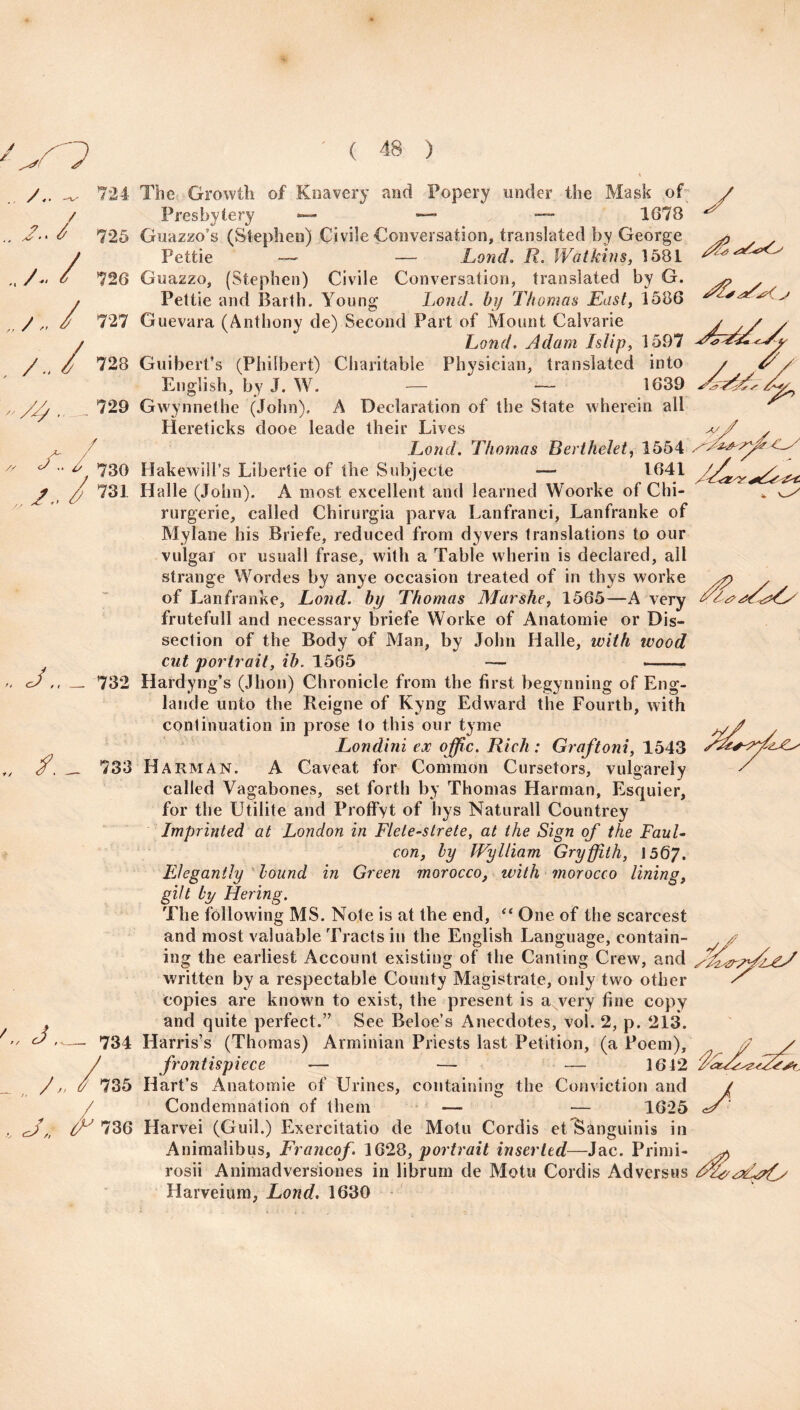 ( 48 )
724 The Growth of Knavery and Popery under the Mask of
Presbytery — — — 1678
725 Guazzo's (Stephen) Civile Conversation, translated by George
Pettie — — Lond. R. Watkins, 1581
726 Guazzo, (Stephen) Civile Conversation, translated by G.
Pettie and Barth. Young Lond. by Thomas East, 1586
727 Guevara (Anthony de) Second Part of Mount Calvarie
Lond. Adam Islip, 1597
728 Guibert's (Philbert) Charitable Physician, translated into
English, by J. W. — — 1639
729 Gwynnethe (John). A Declaration of the State wherein all
Hereticks dooe leade their Lives
Lond. Thomas Berthelet, 1554
730 Hakewill's Libertie of the Subjecte — 1641
731 Halle (John). A most excellent and learned Woorke of Chi-
rurgerie, called Chirurgia parva Lanfranci, Lanfranke of
Mylane his Briefe, reduced from dyvers translations to our
vulgar or usuall frase, with a Table wherin is declared, all
strange Wordes by anye occasion treated of in thys worke
of Lanfranke, Lond. by Thomas Marshe, 1565—A very
frutefull and necessary briefe Worke of Anatomie or Dis-
section of the Body of Man, by John Halle, with wood
cut portrait, ib. 1565 — ——
732 Hardyng's (Jhon) Chronicle from the first begynning of Eng-
lande unto the Reigne of Kyng Edward the Fourth, with
continuation in prose to this our tyme
Londini ex offic. Rich: Graftoni, 1543
733 HARMAN. A Caveat for Common Cursetors, vulgarely
called Vagabones, set forth by Thomas Harman, Esquier,
for the Utilite and Proffyt of hys Naturall Countrey
Imprinted at London in Flete-strete, at the Sign of the Faul-
con, by Wylliam Gryffith, 1567.
Elegantly bound in Green morocco, with morocco lining,
gilt by Hering.
The following MS. Note is at the end, “ One of the scarcest
and most valuable Tracts in the English Language, contain-
ing the earliest Account existing of the Canting Crew, and
written by a respectable County Magistrate, only two other
copies are known to exist, the present is a very fine copy
and quite perfect.” See Beloe's Anecdotes, vol. 2, p. 213.
734 Harris's (Thomas) Arminian Priests last Petition, (a Poem),
frontispiece — — — 1642
735 Hart's Anatomie of Urines, containing the Conviction and
Condemnation of them — — 1625
736 Harvei (Guil.) Exercitatio de Motu Cordis et Sanguinis in
Animalibus, Francof. 1628, portrait inserted—Jac. Primi-
rosii Animadversiones in librum de Motu Cordis Adversus
Harveium, Lond. 1630